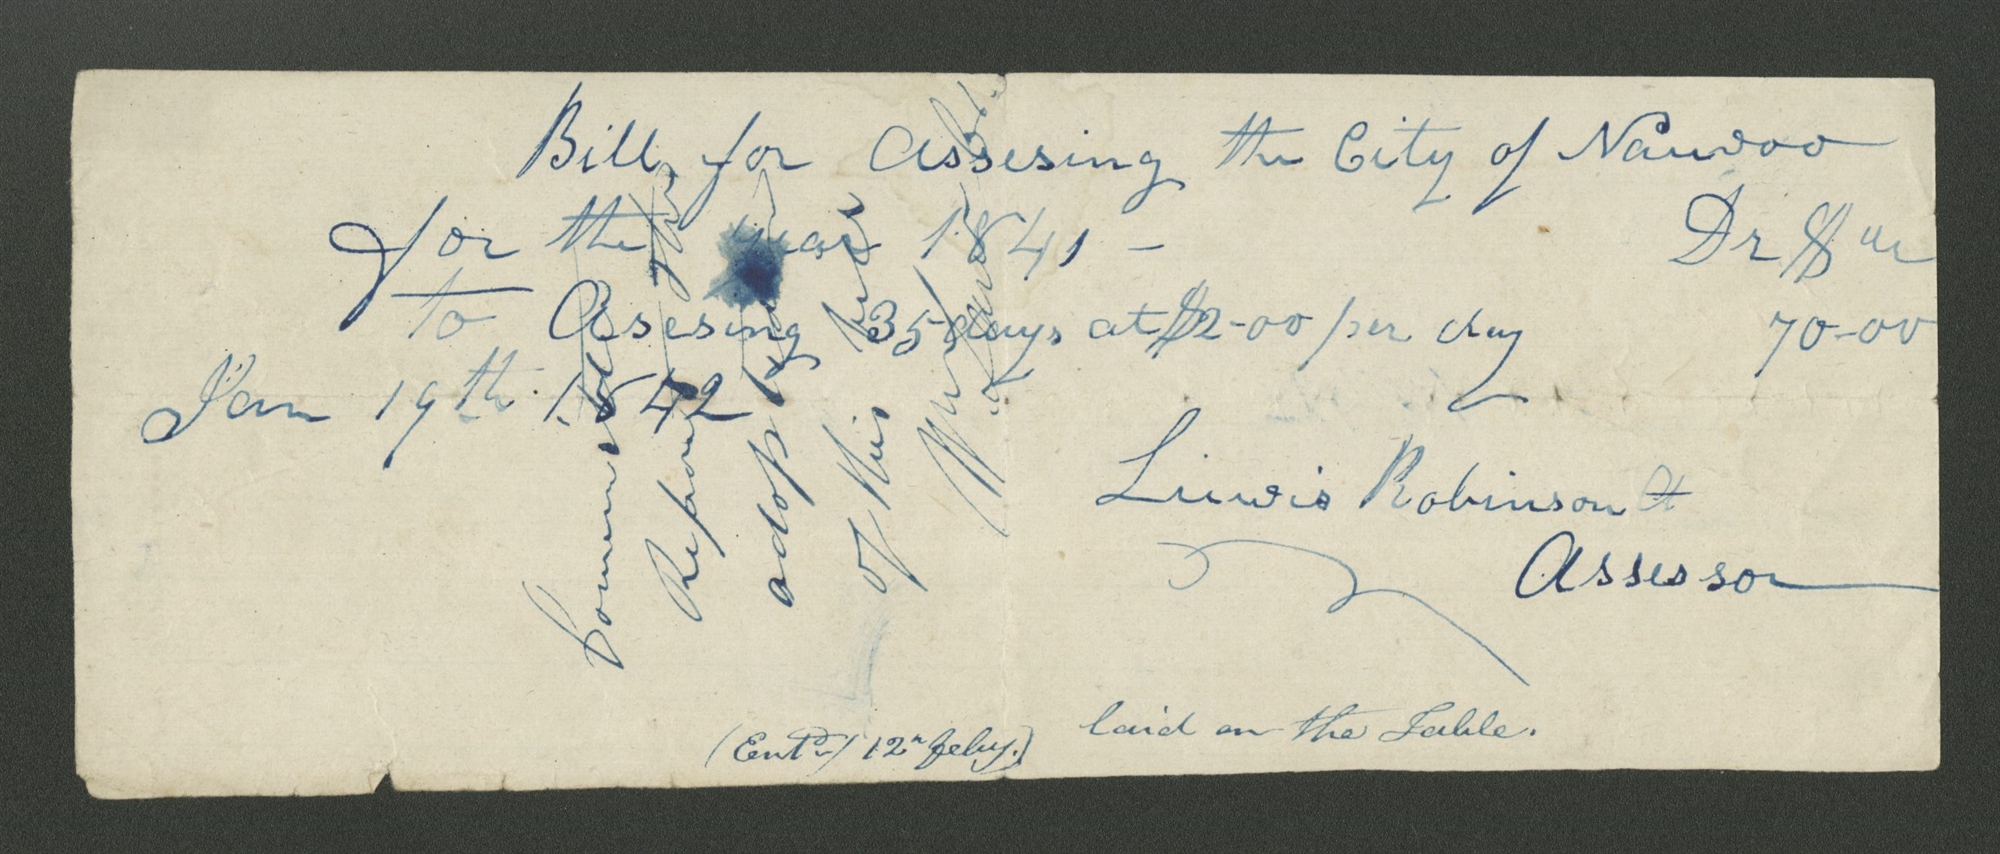 Bill, for Assesing the City of Nauvoo
for the year 1841 –
Dr $
to Asesing 35 days at $2-00 per day 70-00
Jan 19th 1842
Liuwis Robinson
Assessor
adopted
of this
(Entd) 12th feby.)
laid on the Table.